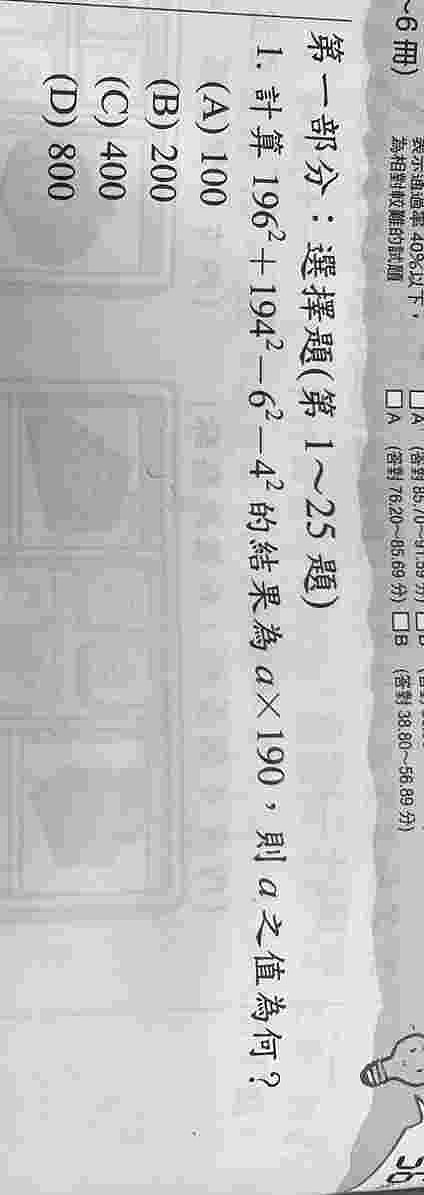 ~6 冊)
表示通過率 40%以下，
為相對較難的試題
□A (答對 85.70~91.59 分)
□A (答對 76.20~85.69 分) □B (答對 38.80~56.89 分)
第一部分：選擇題(第 1~25 題)
1. 計算 196²+194²−6²−4² 的結果為 a×190，則 a 之值為何？
(A) 100
(B) 200
(C) 400
(D) 800